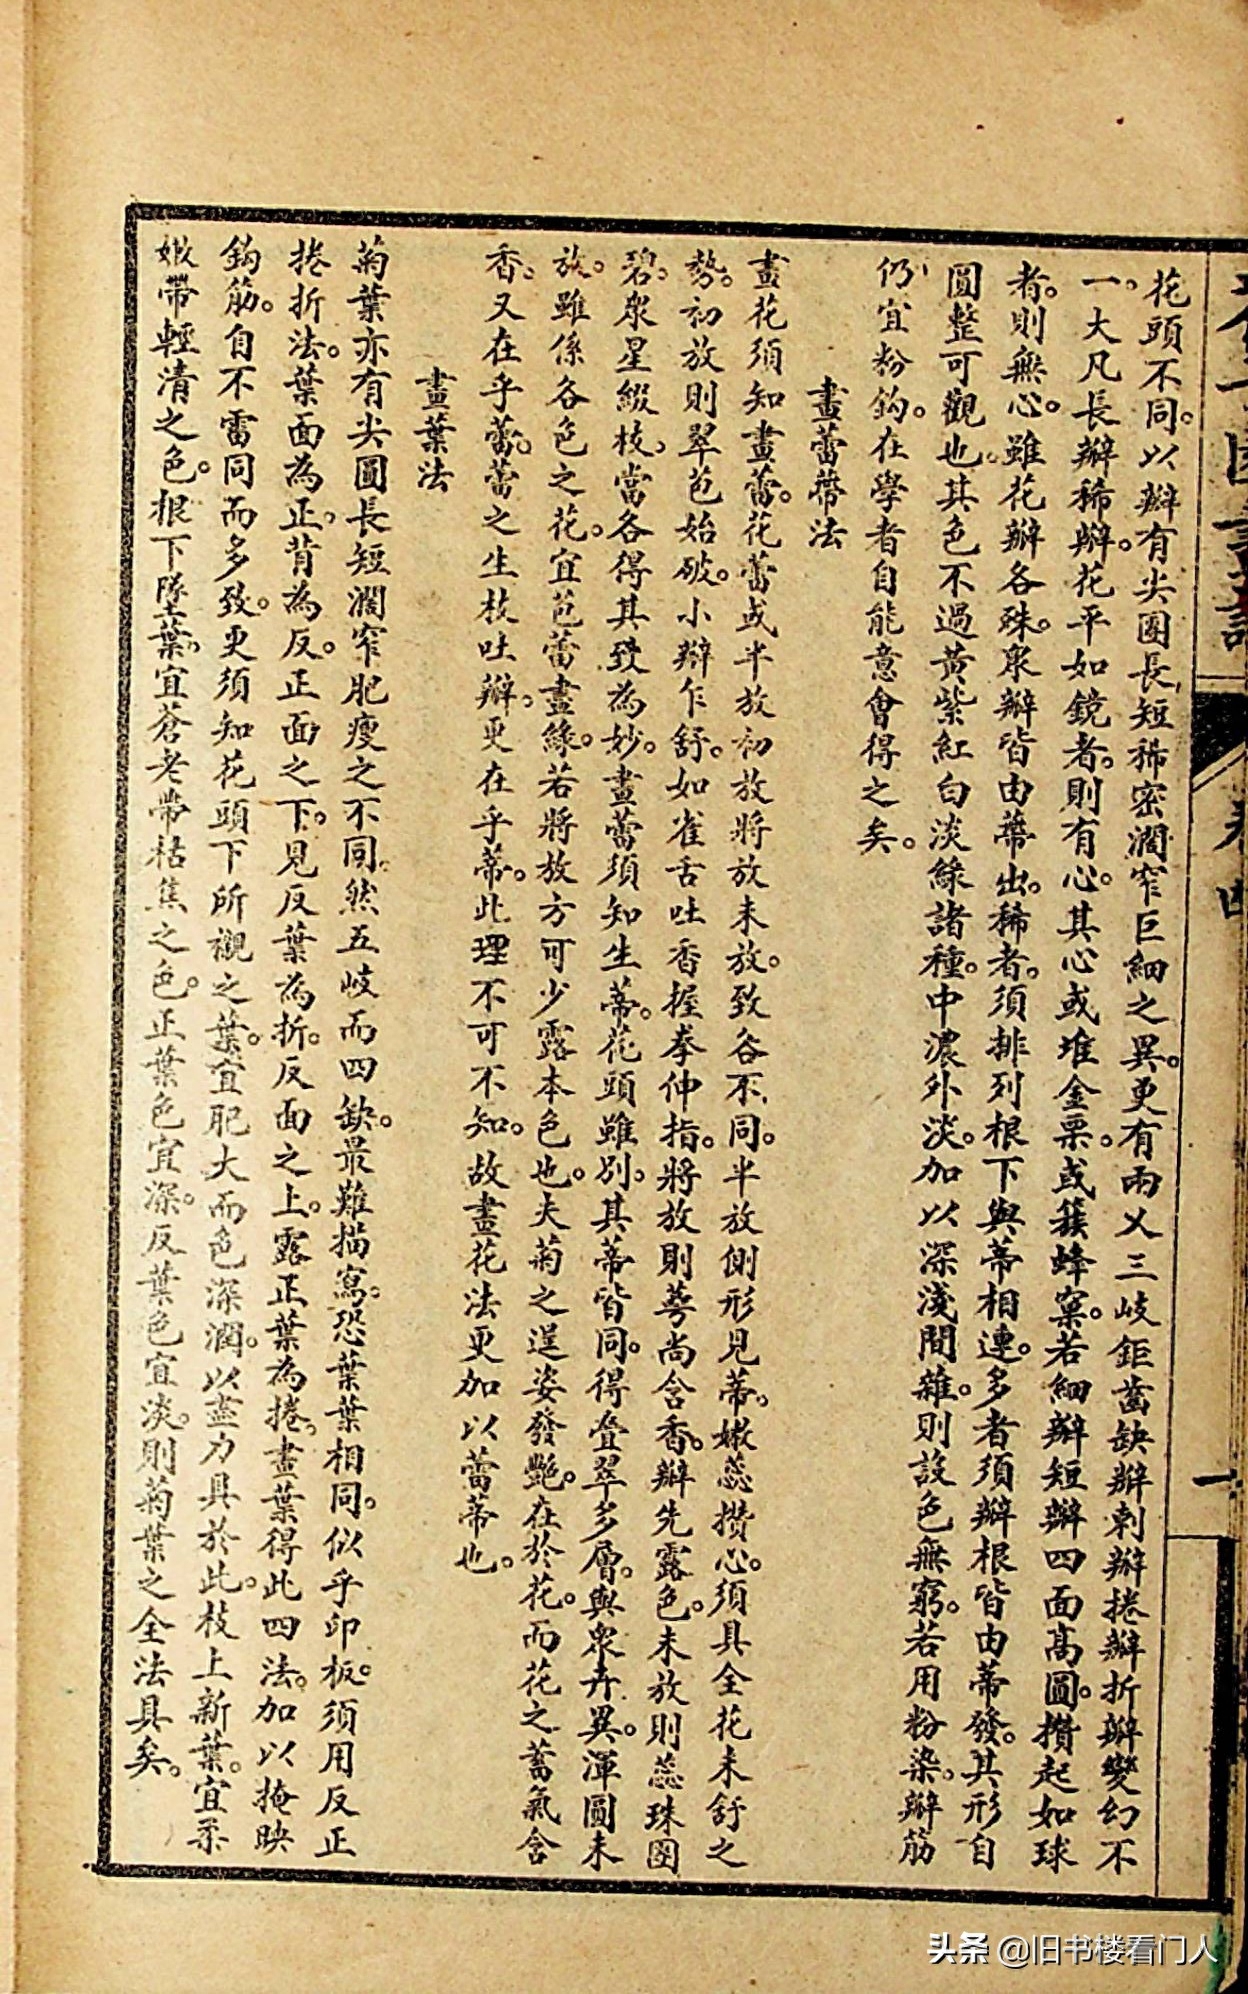 花頭不同。以瓣有尖圓長短稀密濶窄巨細之異。更有兩乂三岐鉅齒缺瓣刺瓣捲瓣折瓣變幻不
一。大凡長瓣稀瓣。花平如鏡者。則有心。其心或堆金粟。或簇蜂窠。若細瓣短瓣四面高圓。攢起如球
者。則無心。雖花瓣各殊。衆瓣皆由蒂出。稀者。須排列根下與蒂相連。多者須瓣根皆由蒂發。其形自
圓整可觀也。其色不過黃紫紅白淡綠諸種。中濃外淡。加以深淺間雜。則設色無窮。若用粉染。瓣筋
仍宜粉鈎。在學者自能意會得之矣。
畫蕾蒂法
畫花須知畫蕾。花蕾或半放初放將放未放。致各不同。半放側形見蒂。嫩蕊攢心。須具全花未舒之
勢。初放則翠苞始破。小瓣乍舒。如雀舌吐香握拳伸指。將放則萼尚含香。瓣先露色。未放則蕊珠團
碧。衆星綴枝。當各得其致為妙。畫蕾須知生蒂。花頭雖別。其蒂皆同。得疊翠多層。與衆卉異。渾圓未
放。雖係各色之花。宜苞蕾畫綠。若將放方可少露本色也。夫菊之逞姿發艷。在於花。而花之蓄氣含
香。又在乎蕾。蕾之生枝吐瓣。更在乎蒂。此理不可不知。故畫花法更加以蕾蒂也。
畫葉法
菊葉亦有尖圓長短濶窄肥瘦之不同。然五岐而四缺。最難描寫。恐葉葉相同。似乎印板。須用反正
捲折法。葉面為正。背為反。正面之下。見反葉為折。反面之上。露正葉為捲。畫葉得此四法。加以掩映
鈎筋。自不雷同而多致。更須知花頭下所襯之葉。宜肥大而色深潤。以盡力具於此。枝上新葉。宜柔
嫩帶輕清之色。根下墜葉。宜蒼老帶枯焦之色。正葉色宜深。反葉色宜淡。則菊葉之全法具矣。
卷四
一
头条 @旧书楼看门人